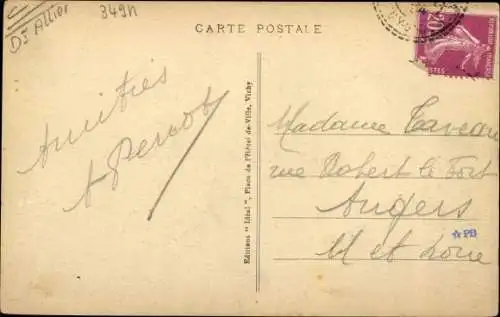 Dt Allier
349h
CARTE POSTALE
20
POSTES
Amitiés
Editions "Idéal", Place de l'Hôtel-de-Ville, Vichy
Madame Taveau
rue Robert le Fort
Angers
M et Loire
☆PB